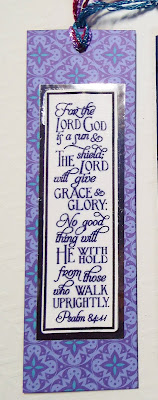 For the
LORD GOD
is a sun &
THE shield; LORD
will give
GRACE &
GLORY:
No good
thing will
HE WITH
HOLD
from those
who WALK
UPRIGHTLY.
Psalm 84:11